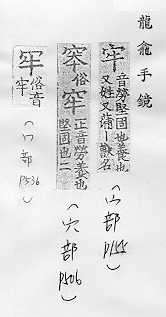 龍龕手鏡
牢 音勞堅固也養也
又姓又蒲牢獸名
(宀部 P155)
窂 俗 牢 正音勞養也
堅固也二
(穴部 P506)
窂 俗音
牢
(穴部 P536)